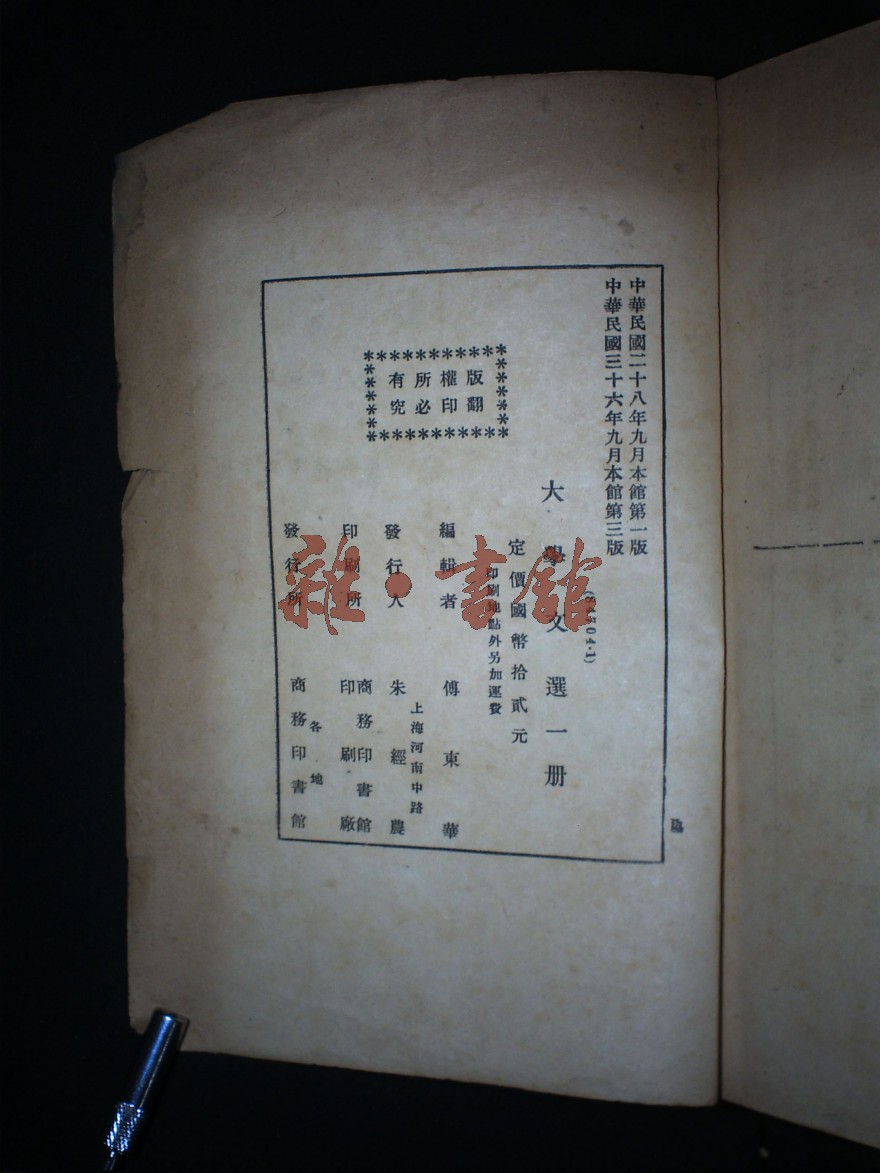 中華民國二十八年九月本館第一版
中華民國三十六年九月本館第三版
(54504·1)
大學文選一册
定價國幣拾貳元
印刷地點外另加運費
版權所有
翻印必究
編輯者 傅東華
上海河南中路
發行人 朱經農
印刷所 商務印書館
印刷廠
發行所 各地
商務印書館
雜·書館